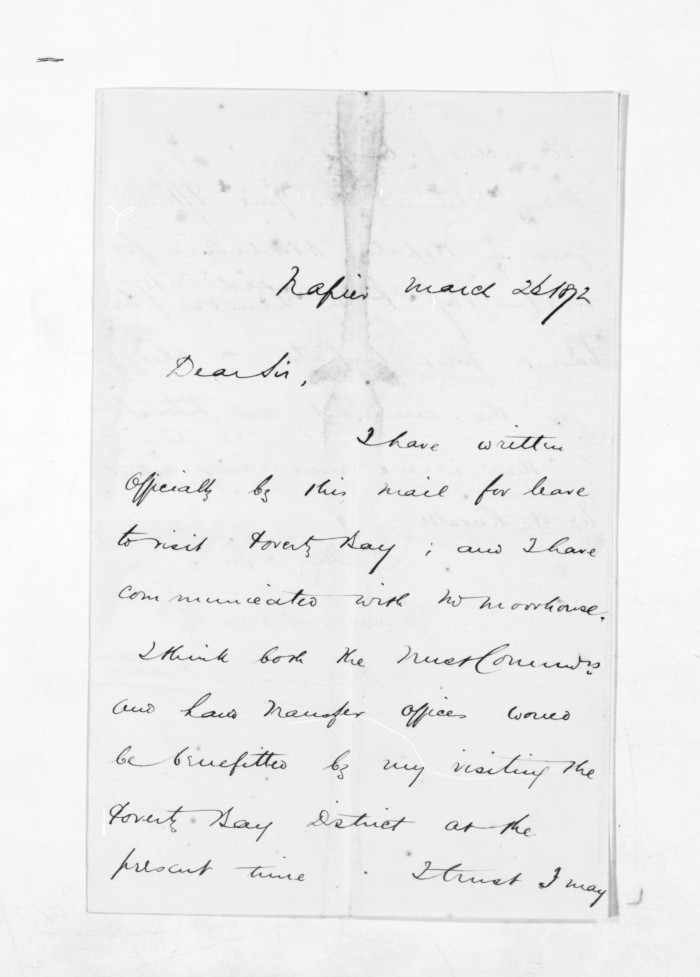 Napier March 26 1872
Dear Sir,
I have written
Officially by this mail for leave
to visit Poverty Bay ; and I have
communicated with Mr Moorhouse.
I think both the Trust Commrs
and Land Transfer offices would
be benefitted by my visiting the
Poverty Bay District at the
present time . I trust I may